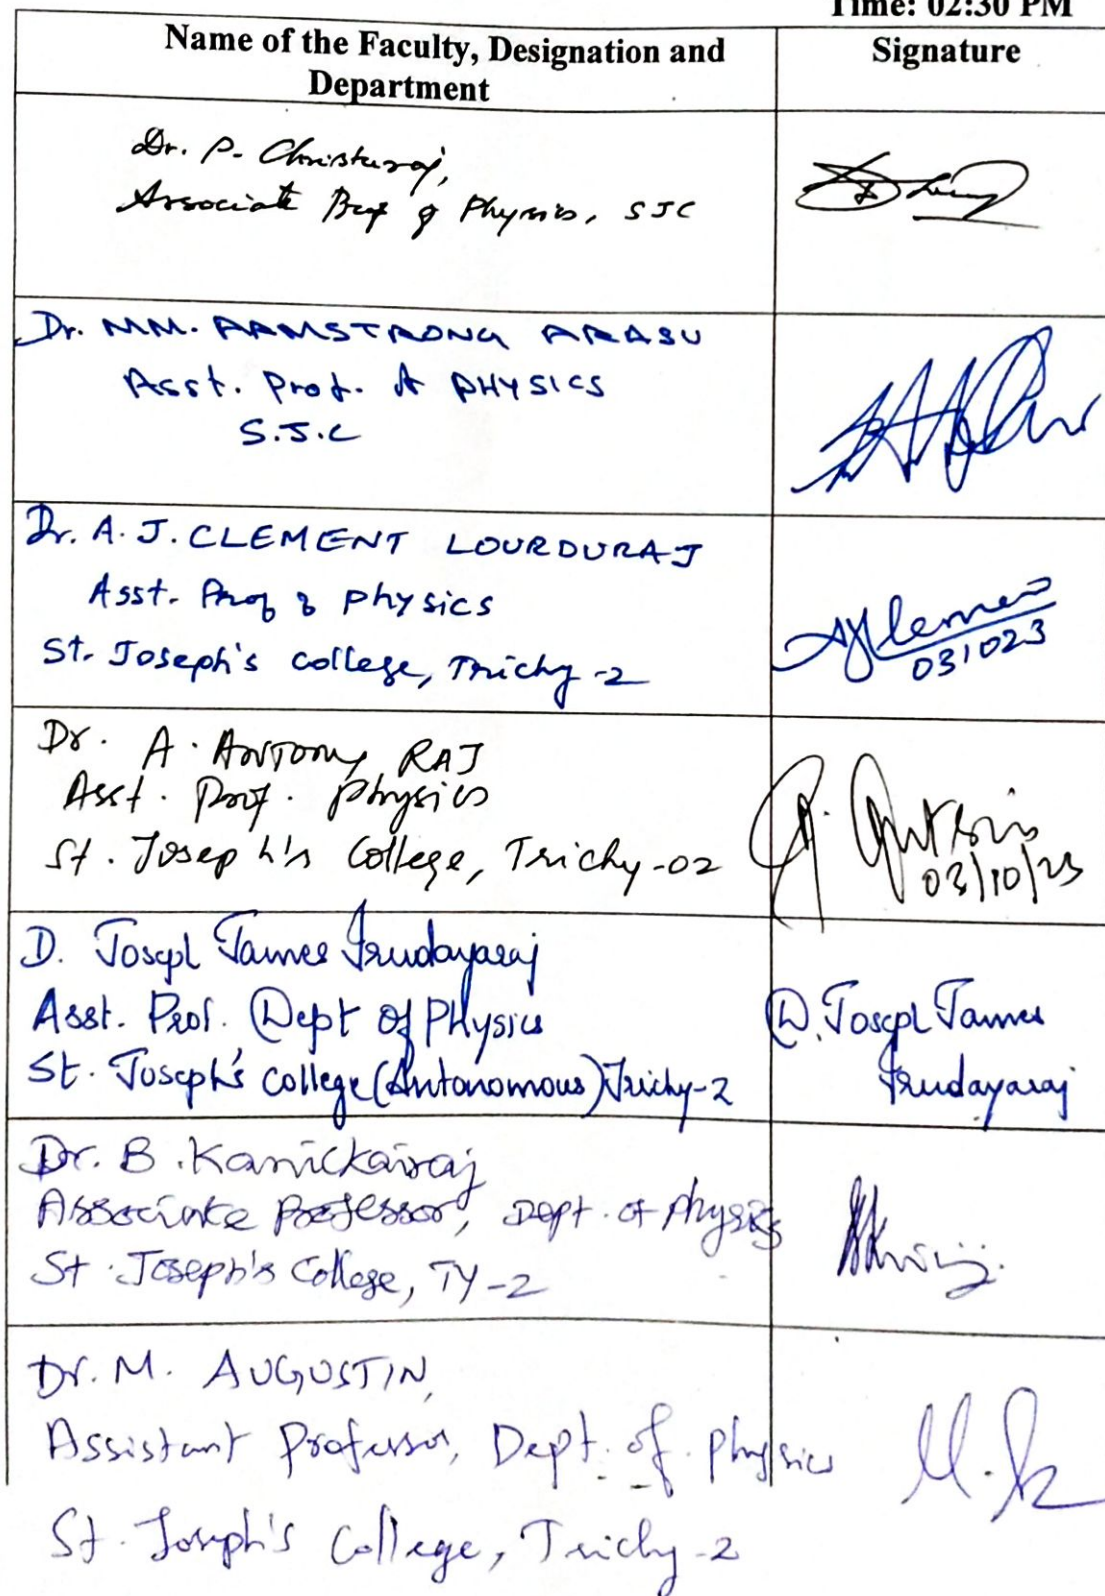 Time: 02:30 PM
Name of the Faculty, Designation and
Department
Signature
Dr. P. Christuraj,
Associate Prof of Physics, SJC
Dr. MM. ARMSTRONG ARASU
Asst. Prof. of PHYSICS
S.J.C
Dr. A. J. CLEMENT LOURDURAJ
Asst. Prof of Physics
St. Joseph's college, Trichy-2
031023
Dr. A. ANTONY RAJ
Asst. Prof. Physics
St. Joseph's College, Trichy-02
03/10/23
D. Joseph James Irudayaraj
Asst. Prof. Dept of Physics
St. Joseph's college (Autonomous) Trichy-2
D. Joseph James
Irudayaraj
Dr. B. Kanickairaj
Associate Professor, Dept. of Physics
St. Joseph's College, TY-2
Dr. M. AUGUSTIN,
Assistant Professor, Dept. of Physics
St. Joseph's College, Trichy-2